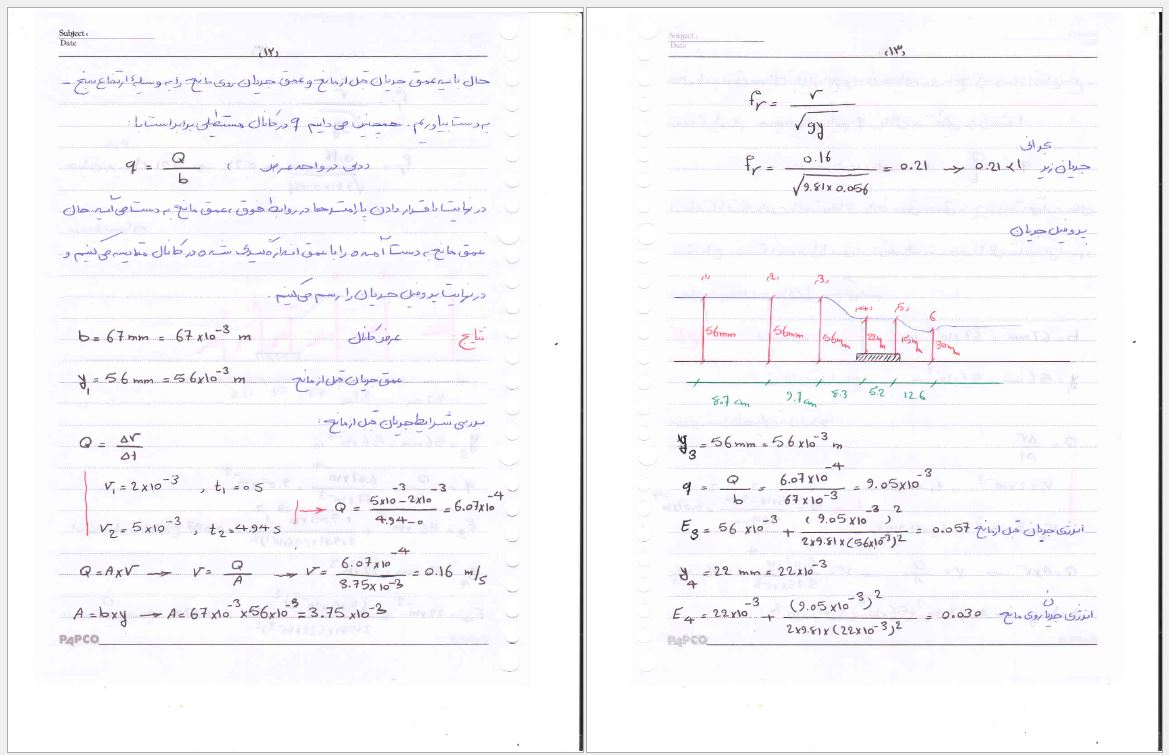 Subject:
Date
(۱۲)
حال باید عمق جریان قبل از مانع و عمق جریان روی مانع را به وسیله ارتفاع سنج -
به دست بیاوریم. همچنین می دانیم q در کانال مستطیلی برابر است با:
q = Q/b دبی در واحد عرض
در نهایت با قرار دادن پارامترها در روابط فوق، عمق مانع به دست می آید. حال
عمق مانع به دست آمده را با عمق اندازه گیری شده در کانال مقایسه می کنیم و
در نهایت پروفیل جریان را رسم می کنیم.
نتایج: عرض کانال b = 67 mm = 67x10^-3 m
عمق جریان قبل از مانع y1 = 56 mm = 56x10^-3 m
بررسی شرایط جریان قبل از مانع:
Q = ΔV/Δt
V1 = 2x10^-3 , t1 = 0 s
V2 = 5x10^-3 , t2 = 4.94 s → Q = (5x10^-3 - 2x10^-3)/(4.94-0) = 6.07x10^-4
Q = AxV → V = Q/A → V = 6.07x10^-4/3.75x10^-3 = 0.16 m/s
A = bxy → A = 67x10^-3 x 56x10^-3 = 3.75x10^-3
PAPCO
Subject:
Date
(۱۳)
fr = V/√gy
fr = 0.16/√9.81x0.056 = 0.21 → 0.21<1 جریان زیر بحرانی
پروفیل جریان
(1) (2) (3) (4) (5) 6
56mm 56mm 56mm 22mm 15mm 30mm
8.7 cm 9.7 cm 8.3 5.2 12.6
y3 = 56 mm = 56x10^-3 m
q = Q/b = 6.07x10^-4/67x10^-3 = 9.05x10^-3
E3 = 56x10^-3 + (9.05x10^-3)^2/2x9.81x(56x10^-3)^2 = 0.057 انرژی جریان قبل از مانع
y4 = 22 mm = 22x10^-3
E4 = 22x10^-3 + (9.05x10^-3)^2/2x9.81x(22x10^-3)^2 = 0.030 انرژی جریان روی مانع
PAPCO